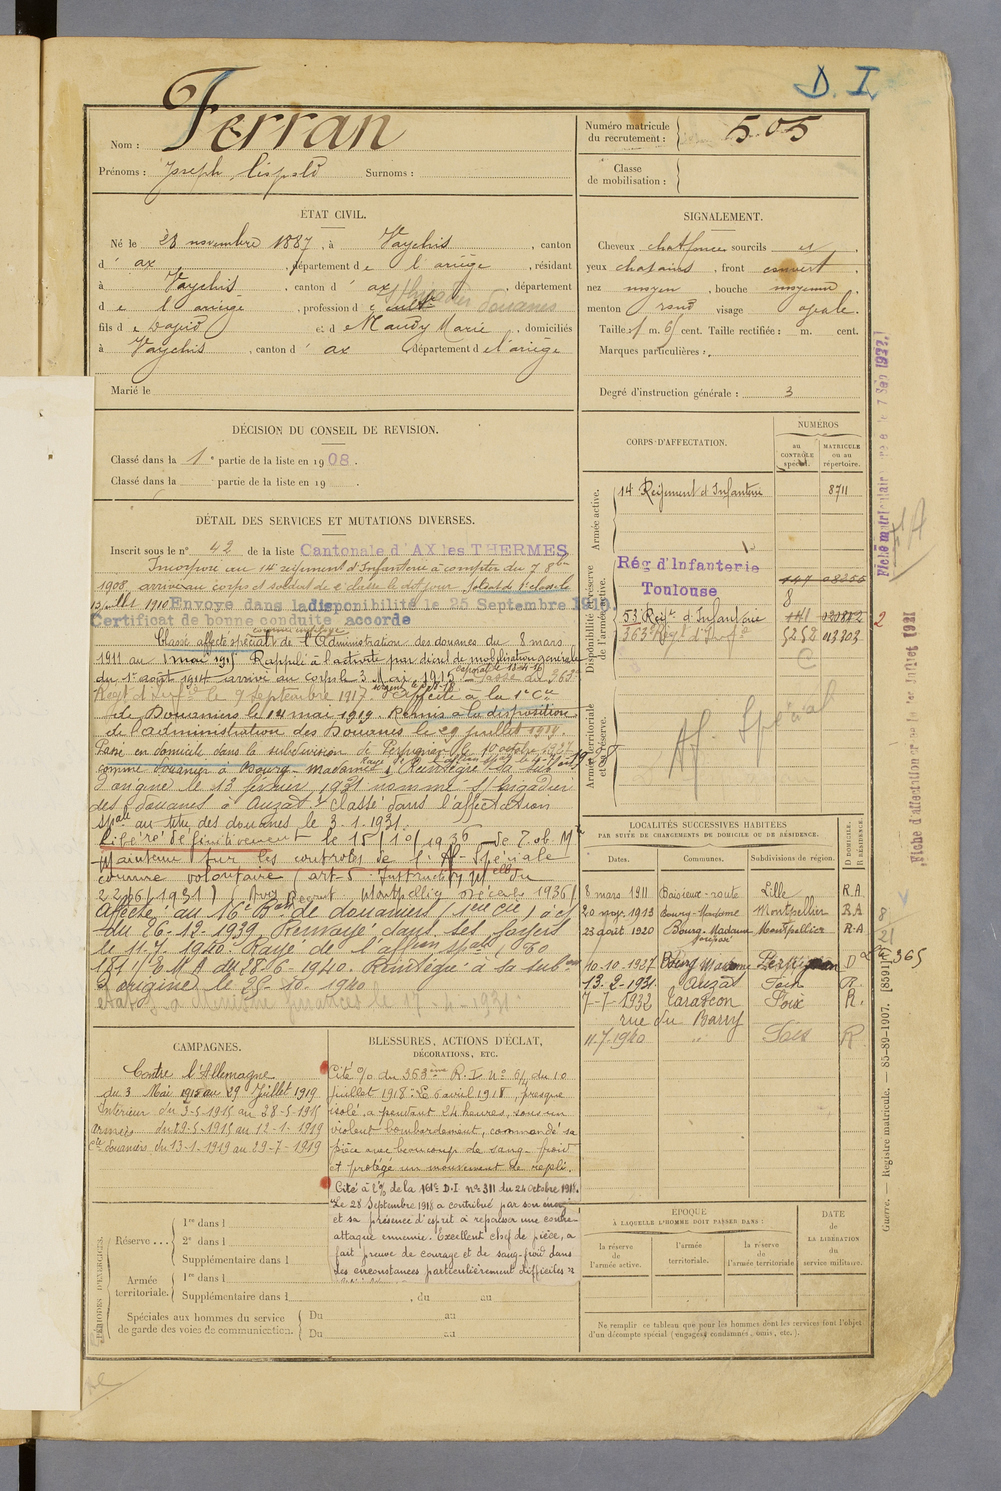 D. I.
Nom : Ferran
Prénoms : Joseph Surnoms :
Numéro matricule du recrutement : 505
Classe de mobilisation :
ÉTAT CIVIL.
Né le 28 novembre 1887, à Vaychis, canton
d' ax, département de l'ariège, résidant
à Vaychis, canton d' ax, département
de l'ariège, profession de douanes
fils de David et de Maudy Marie, domiciliés
à Vaychis, canton d' ax, département de l'ariège
Marié le
SIGNALEMENT.
Cheveux chat foncés sourcils et
yeux chatains, front couvert
nez moyen, bouche moyenne
menton rond visage ovale.
Taille 1 m. 61 cent. Taille rectifiée : m. cent.
Marques particulières :
Degré d'instruction générale : 3
DÉCISION DU CONSEIL DE REVISION.
Classé dans la 1e partie de la liste en 1908.
Classé dans la partie de la liste en 19 .
DÉTAIL DES SERVICES ET MUTATIONS DIVERSES.
Inscrit sous le n° 42 de la liste Cantonale d'AX les THERMES
Incorporé au 14 régiment d'Infanterie à compter du 7 8bre
1908, arrivé au corps et soldat de 2e classe le dit jour. Soldat de 1e classe le
juillet 1910 Envoyé dans la disponibilité le 25 Septembre 1910
Certificat de bonne conduite accordé
Classé affecté spécial de l'Administration des douanes du 8 mars
1911 au 1 mai 1915 Rappelé à l'activité par décret de mobilisation générale
du 1er août 1914 arrivé au corps le 3 Mai 1915 Passé au 363e
Regt d'Inf le 9 septembre 1917 affecté à la 1e Cie
de Douaniers le mai 1919. Remis à la disposition
de l'administration des Douanes le 29 juillet 1919.
Passe en domicile dans la subdivision de Perpignan le 10 octobre 1927
comme douanier à Bourg-Madame. Réintégré sa sub
d'origine le 13 février 1931 nommé s/brigadier
des douanes à Auzat. Classé dans l'affectation
spale au titre des douanes le 3.1.1931.
Libéré définitivement le 15/10/1936
Maintenu sur les controles de l'Aff Spéciale
comme volontaire (art 5 Instruction Melle du
22/6/1931)
Affecté au 16e Bon de douaniers (1ere cie) à cf
du 26-12-1939. Renvoyé dans ses foyers
le 11.7.1940. Rayé de l'affon spale
28-6-1940. Réintégré à sa sub
d'origine le 25-10-1940
CORPS D'AFFECTATION.
NUMÉROS
au CONTRÔLE spécial.
MATRICULE ou au répertoire.
Armée active.
14 Régiment d'Infanterie 8711
Disponibilité et réserve de l'armée active.
Rég d'Infanterie
Toulouse
53 Regt d'Infanterie
363e Regt d'Infe 5252
Armée territoriale et sa réserve.
Aff. Spécial
LOCALITÉS SUCCESSIVES HABITÉES
PAR SUITE DE CHANGEMENTS DE DOMICILE OU DE RÉSIDENCE.
Dates. Communes. Subdivisions de région. D DOMICILE. R RÉSIDENCE.
8 mars 1911 Baisieux-route Lille R.A
20 nov. 1913 Bourg-Madame Montpellier R.A
23 août 1920 Bourg-Madame Montpellier R.A
10-10-1927 Bourg Madame Perpignan D
13.2-1931 Auzat Foix R.
7-7-1932 Tarascon Foix R.
rue du Barry
11-7-1940 " Foix R
CAMPAGNES.
Contre l'Allemagne
du 3 Mai 1915 au 29 Juillet 1919
Intérieur du 3-5-1915 au 28-5-1915
armées du 29-5-1915 au 12-1-1919
cie douaniers du 13-1-1919 au 29-7-1919
BLESSURES, ACTIONS D'ÉCLAT,
DÉCORATIONS, ETC.
Cité % du 363ème R.I. N° 614 du 10
juillet 1918 : Le 6 avril 1918, presque
isolé, a pendant 24 heures, sous un
violent bombardement, commandé sa
pièce avec beaucoup de sang-froid
et protégé un mouvement de repli.
Cité à l'% de la 161e D.I. n° 311 du 24 octobre 1918.
Le 28 Septembre 1918 a contribué par son énergie
et sa présence d'esprit à repousser une contre
attaque ennemie. Excellent chef de pièce, a
fait preuve de courage et de sang-froid dans
des circonstances particulièrement difficiles
PÉRIODES D'EXERCICES.
Réserve... 1re dans l
2e dans l
Supplémentaire dans l
Armée territoriale. 1re dans l
Supplémentaire dans l , du au
Spéciales aux hommes du service de garde des voies de communication. Du au
Du au
ÉPOQUE
À LAQUELLE L'HOMME DOIT PASSER DANS :
la réserve de l'armée active.
l'armée territoriale.
la réserve de l'armée territoriale
DATE de LA LIBÉRATION du service militaire.
Ne remplir ce tableau que pour les hommes dont les services font l'objet
d'un décompte spécial (engagés, condamnés, omis, etc.).
Guerre. — Registre matricule. — 85-89-1907. [8591]
365